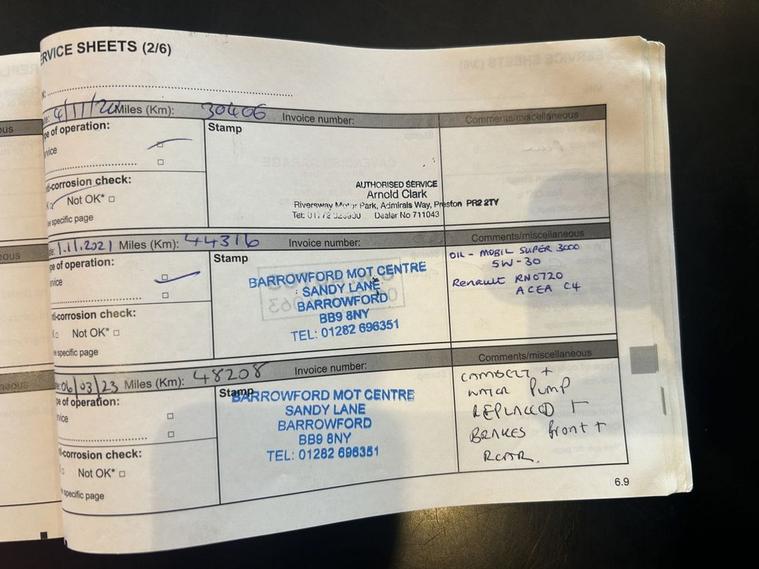 ERVICE SHEETS (2/6)
4/11/20 Miles (Km): 30406 Invoice number: Comments/miscellaneous
pe of operation:
vice
Stamp
i-corrosion check:
Not OK*
specific page
AUTHORISED SERVICE
Arnold Clark
Riversway Motor Park, Admirals Way, Preston PR2 2TY
Tel: Dealer No 711043
1.11.2021 Miles (Km): 44316 Invoice number: Comments/miscellaneous
pe of operation:
vice
Stamp
BARROWFORD MOT CENTRE
SANDY LANE
BARROWFORD
BB9 8NY
TEL: 01282 696351
OIL - MOBIL SUPER 3000
5W-30
Renault RN0720
ACEA C4
i-corrosion check:
Not OK*
specific page
06/03/23 Miles (Km): 48208 Invoice number: Comments/miscellaneous
pe of operation:
vice
Stamp
BARROWFORD MOT CENTRE
SANDY LANE
BARROWFORD
BB9 8NY
TEL: 01282 696351
CAMBELT +
WATER PUMP
REPLACED +
BRAKES front +
REAR.
i-corrosion check:
Not OK*
specific page
6.9